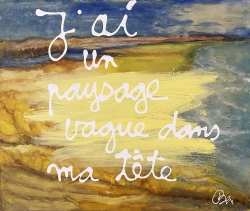 J'ai
un
paysage
vague dans
ma tête